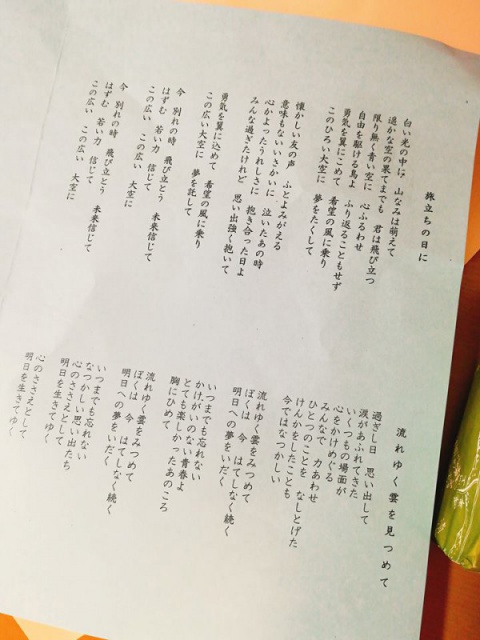 旅立ちの日に
白い光の中に 山なみは萌えて
遥かな空の果てまでも 君は飛び立つ
限り無く青い空に 心ふるわせ
自由を駆ける鳥よ ふり返ることもせず
勇気を翼にこめて 希望の風に乗り
このひろい大空に 夢をたくして
懐かしい友の声 ふとよみがえる
意味もないいさかいに 泣いたあの時
心かよったうれしさに 抱き合った日よ
みんな過ぎたけれど 思い出強く抱いて
勇気を翼に込めて 希望の風に乗り
この広い大空に 夢を託して
今 別れの時 飛び立とう 未来信じて
はずむ 若い力 信じて
この広い この広い 大空に
今 別れの時 飛び立とう 未来信じて
はずむ 若い力 信じて
この広い この広い 大空に
流れゆく雲を見つめて
過ぎし日 思い出して
涙があふれてきた
いくつもの場面が
心をかけめぐる
みんなで 力あわせ
ひとつのことを なしとげた
けんかをしたことも
今ではなつかしい
流れゆく雲をみつめて
ぼくは 今 はてしなく続く
明日への夢をいだく
いつまでも忘れない
かけがいのない青春よ
とても楽しかったあのころ
胸にひめて
流れゆく雲をみつめて
ぼくは 今 はてしなく続く
明日への夢をいだく
いつまでも忘れない
なつかしい思い出たち
心のささえとして
明日を生きてゆく
心のささえとして
明日を生きてゆく